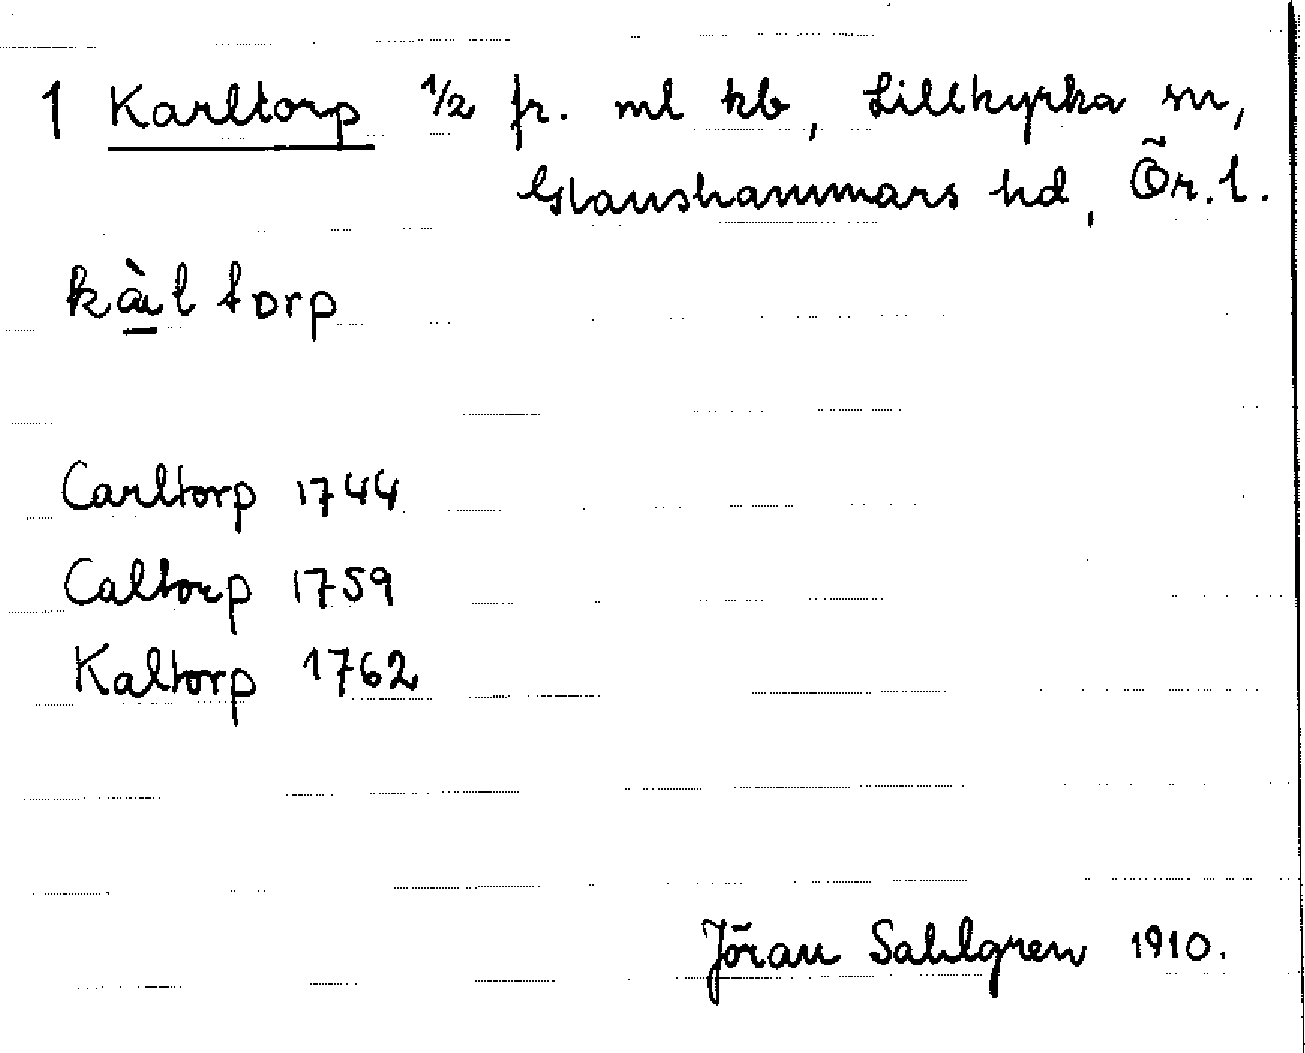 1 Karltorp 1/2 fr. ml kb, Lillkyrka sn,
Glanshammars hd, Ör. l.
kàl torp
Carltorp 1744
Caltorp 1759
Kaltorp 1762
Jöran Sahlgren 1910.